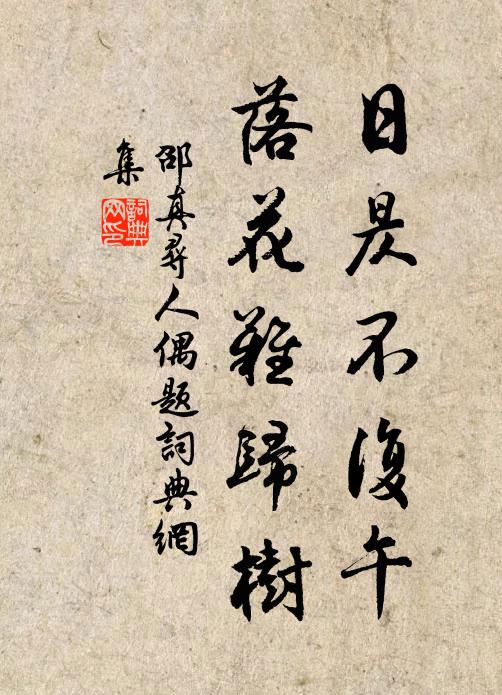 日昃不復午
落花難歸樹
邵真尋人偶題詞典網
集
詞典
网印